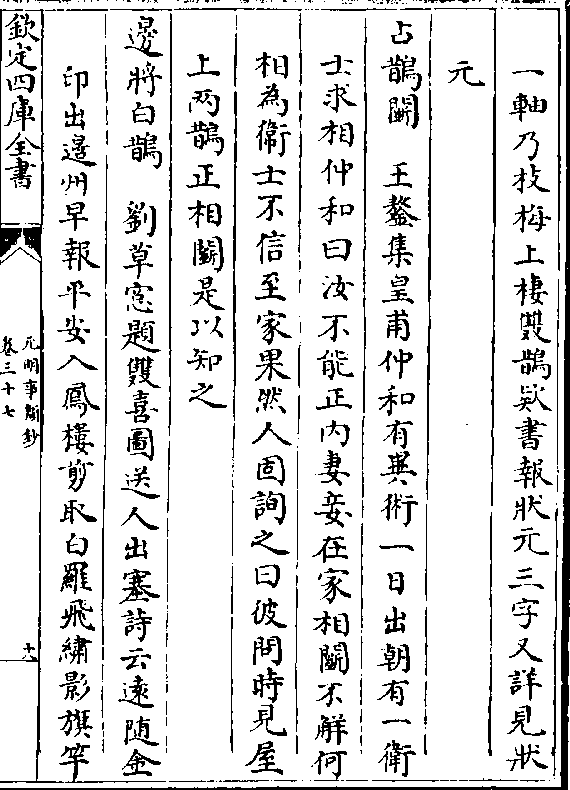 一軸乃枝梅上棲雙鵲欵書報狀元三字又詳見狀
元
占鵲鬭　王鏊集皇甫仲和有異術一日出朝有一衛
士求相仲和曰汝不能正内妻妾在家相鬭不解何
相為衛士不信至家果然人固詢之曰彼問時見屋
上兩鵲正相鬭是以知之
邊將白鵲　劉草窓題雙喜圖送人出塞詩云遠隨金
印出邊州早報平安入鳳樓剪取白羅飛繡影旗竿
欽定四庫全書
元明事類鈔
卷三十七
十八